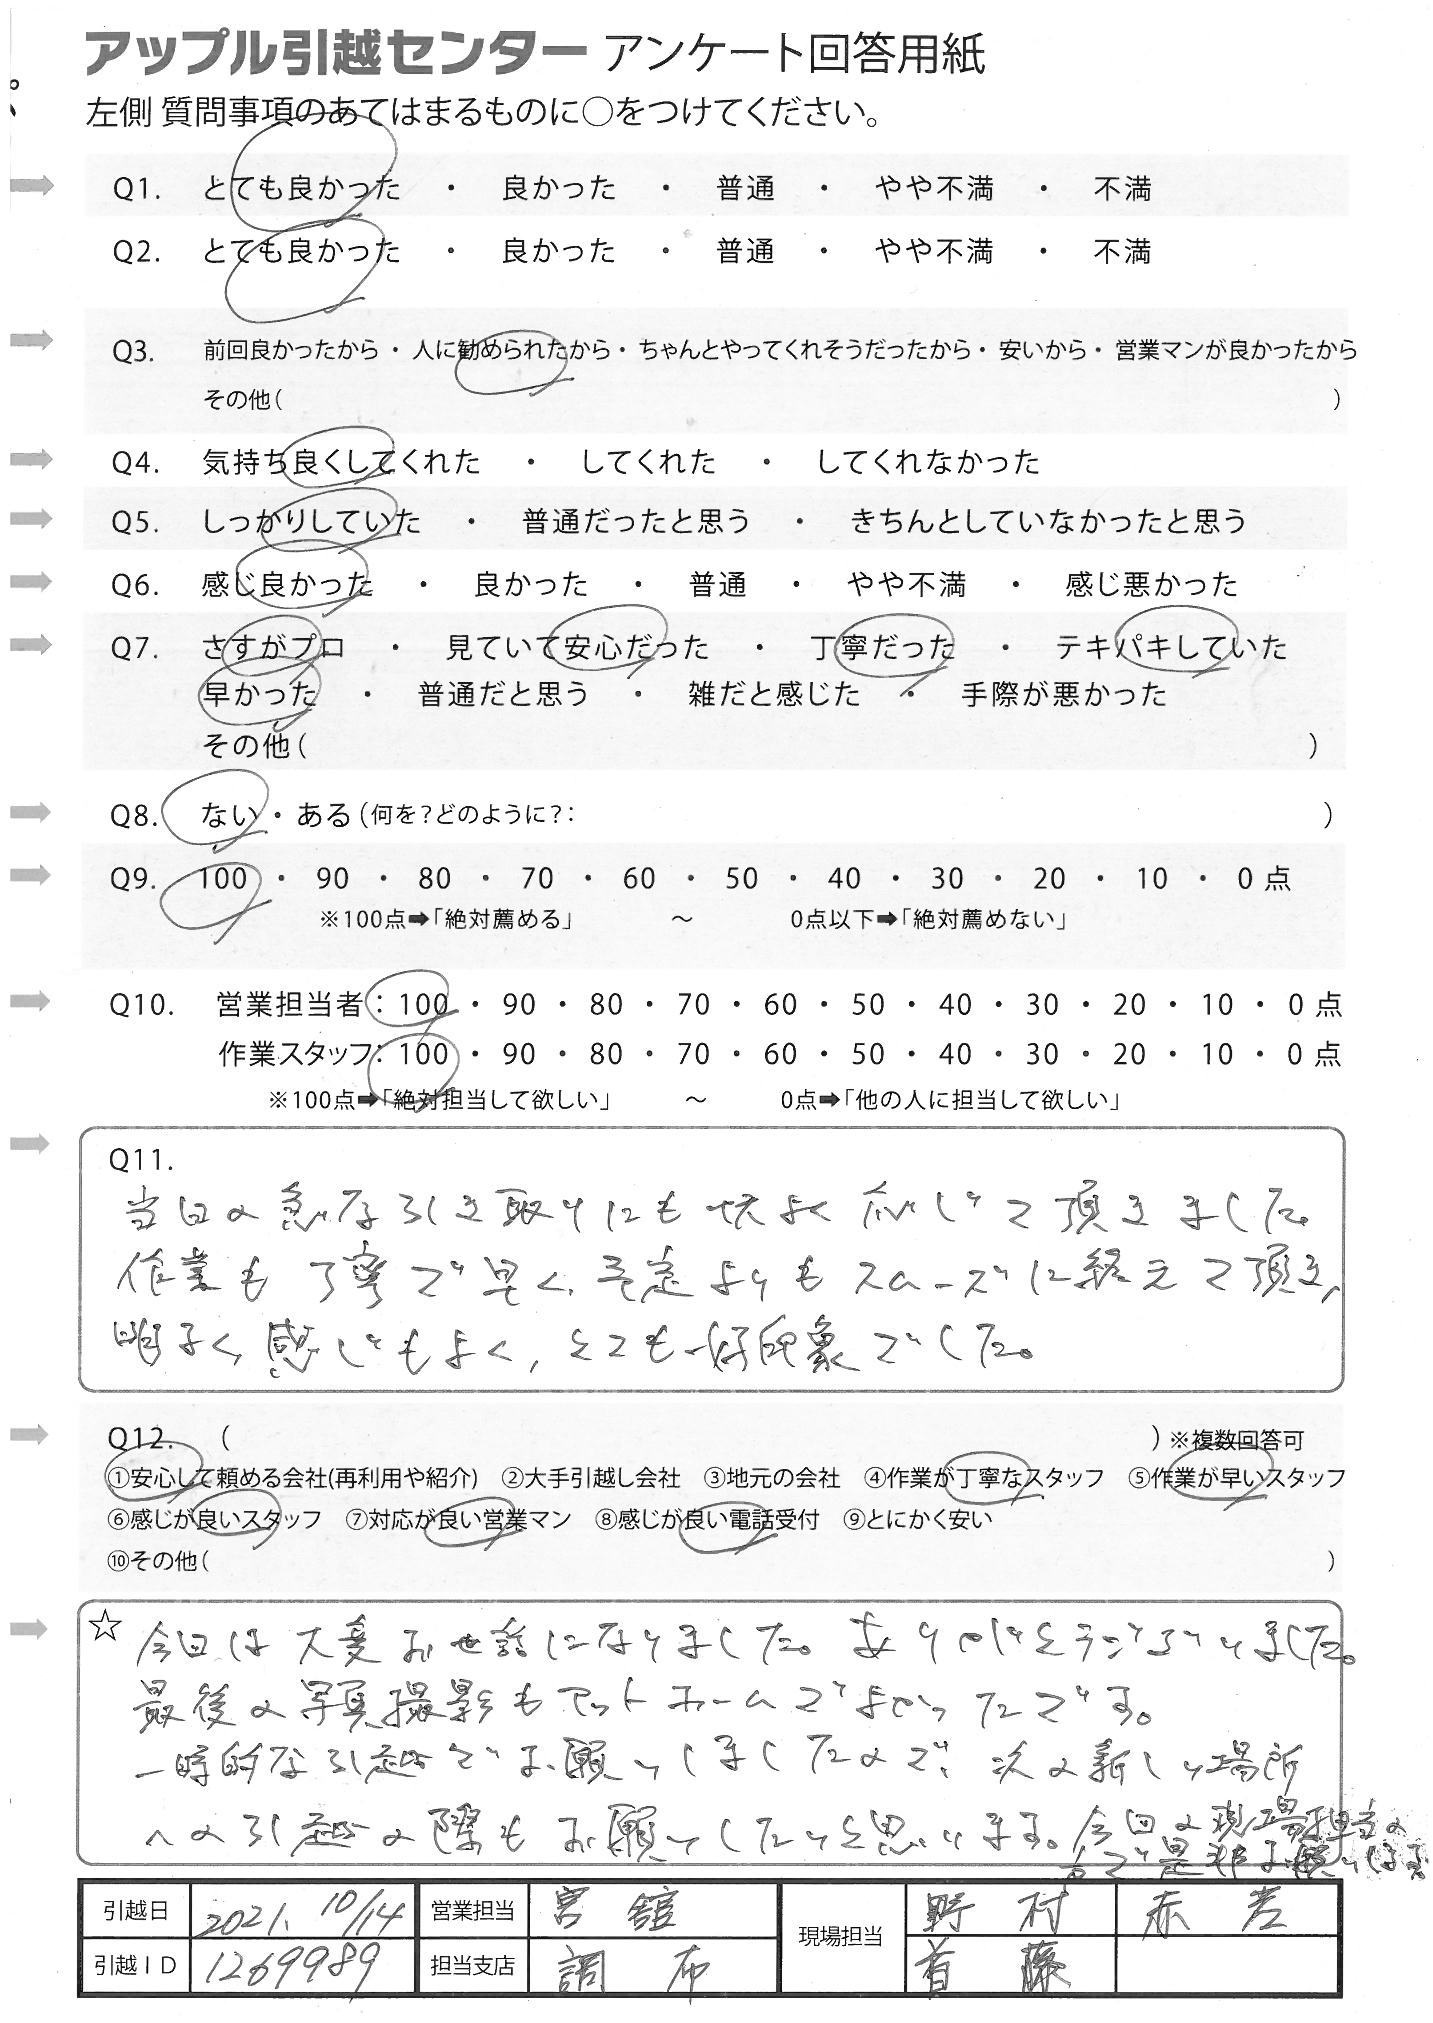 アップル引越センター アンケート回答用紙
左側 質問事項のあてはまるものに○をつけてください。
Q1. とても良かった ・ 良かった ・ 普通 ・ やや不満 ・ 不満
Q2. とても良かった ・ 良かった ・ 普通 ・ やや不満 ・ 不満
Q3. 前回良かったから・人に勧められたから・ちゃんとやってくれそうだったから・安いから・営業マンが良かったから
その他( )
Q4. 気持ち良くしてくれた ・ してくれた ・ してくれなかった
Q5. しっかりしていた ・ 普通だったと思う ・ きちんとしていなかったと思う
Q6. 感じ良かった ・ 良かった ・ 普通 ・ やや不満 ・ 感じ悪かった
Q7. さすがプロ ・ 見ていて安心だった ・ 丁寧だった ・ テキパキしていた
早かった ・ 普通だと思う ・ 雑だと感じた ・ 手際が悪かった
その他( )
Q8. ない・ある(何を?どのように?: )
Q9. 100 ・ 90 ・ 80 ・ 70 ・ 60 ・ 50 ・ 40 ・ 30 ・ 20 ・ 10 ・ 0 点
※100点➡「絶対薦める」 〜 0点以下➡「絶対薦めない」
Q10. 営業担当者:100 ・ 90 ・ 80 ・ 70 ・ 60 ・ 50 ・ 40 ・ 30 ・ 20 ・ 10 ・ 0 点
作業スタッフ:100 ・ 90 ・ 80 ・ 70 ・ 60 ・ 50 ・ 40 ・ 30 ・ 20 ・ 10 ・ 0 点
※100点➡「絶対担当して欲しい」 〜 0点➡「他の人に担当して欲しい」
Q11.
当日の急な引き取りにも快よく応じて頂きました。
作業も丁寧で早く、予定よりもスムーズに終えて頂き、
明るく、感じもよく、とても好印象でした。
Q12. ( ) ※複数回答可
①安心して頼める会社(再利用や紹介) ②大手引越し会社 ③地元の会社 ④作業が丁寧なスタッフ ⑤作業が早いスタッフ
⑥感じが良いスタッフ ⑦対応が良い営業マン ⑧感じが良い電話受付 ⑨とにかく安い
⑩その他( )
☆ 今回は大変お世話になりました。ありがとうございました。
最後の写真撮影もアットホームでよかったです。
一時的な引越でお願いしましたので、次の新しい場所
への引越の際もお願いしたいと思います。今回の現場担当の
方で是非お願いします
引越日 2021. 10/14 営業担当 宮舘 現場担当 野村 赤岩
引越ID 1269989 担当支店 調布 首藤